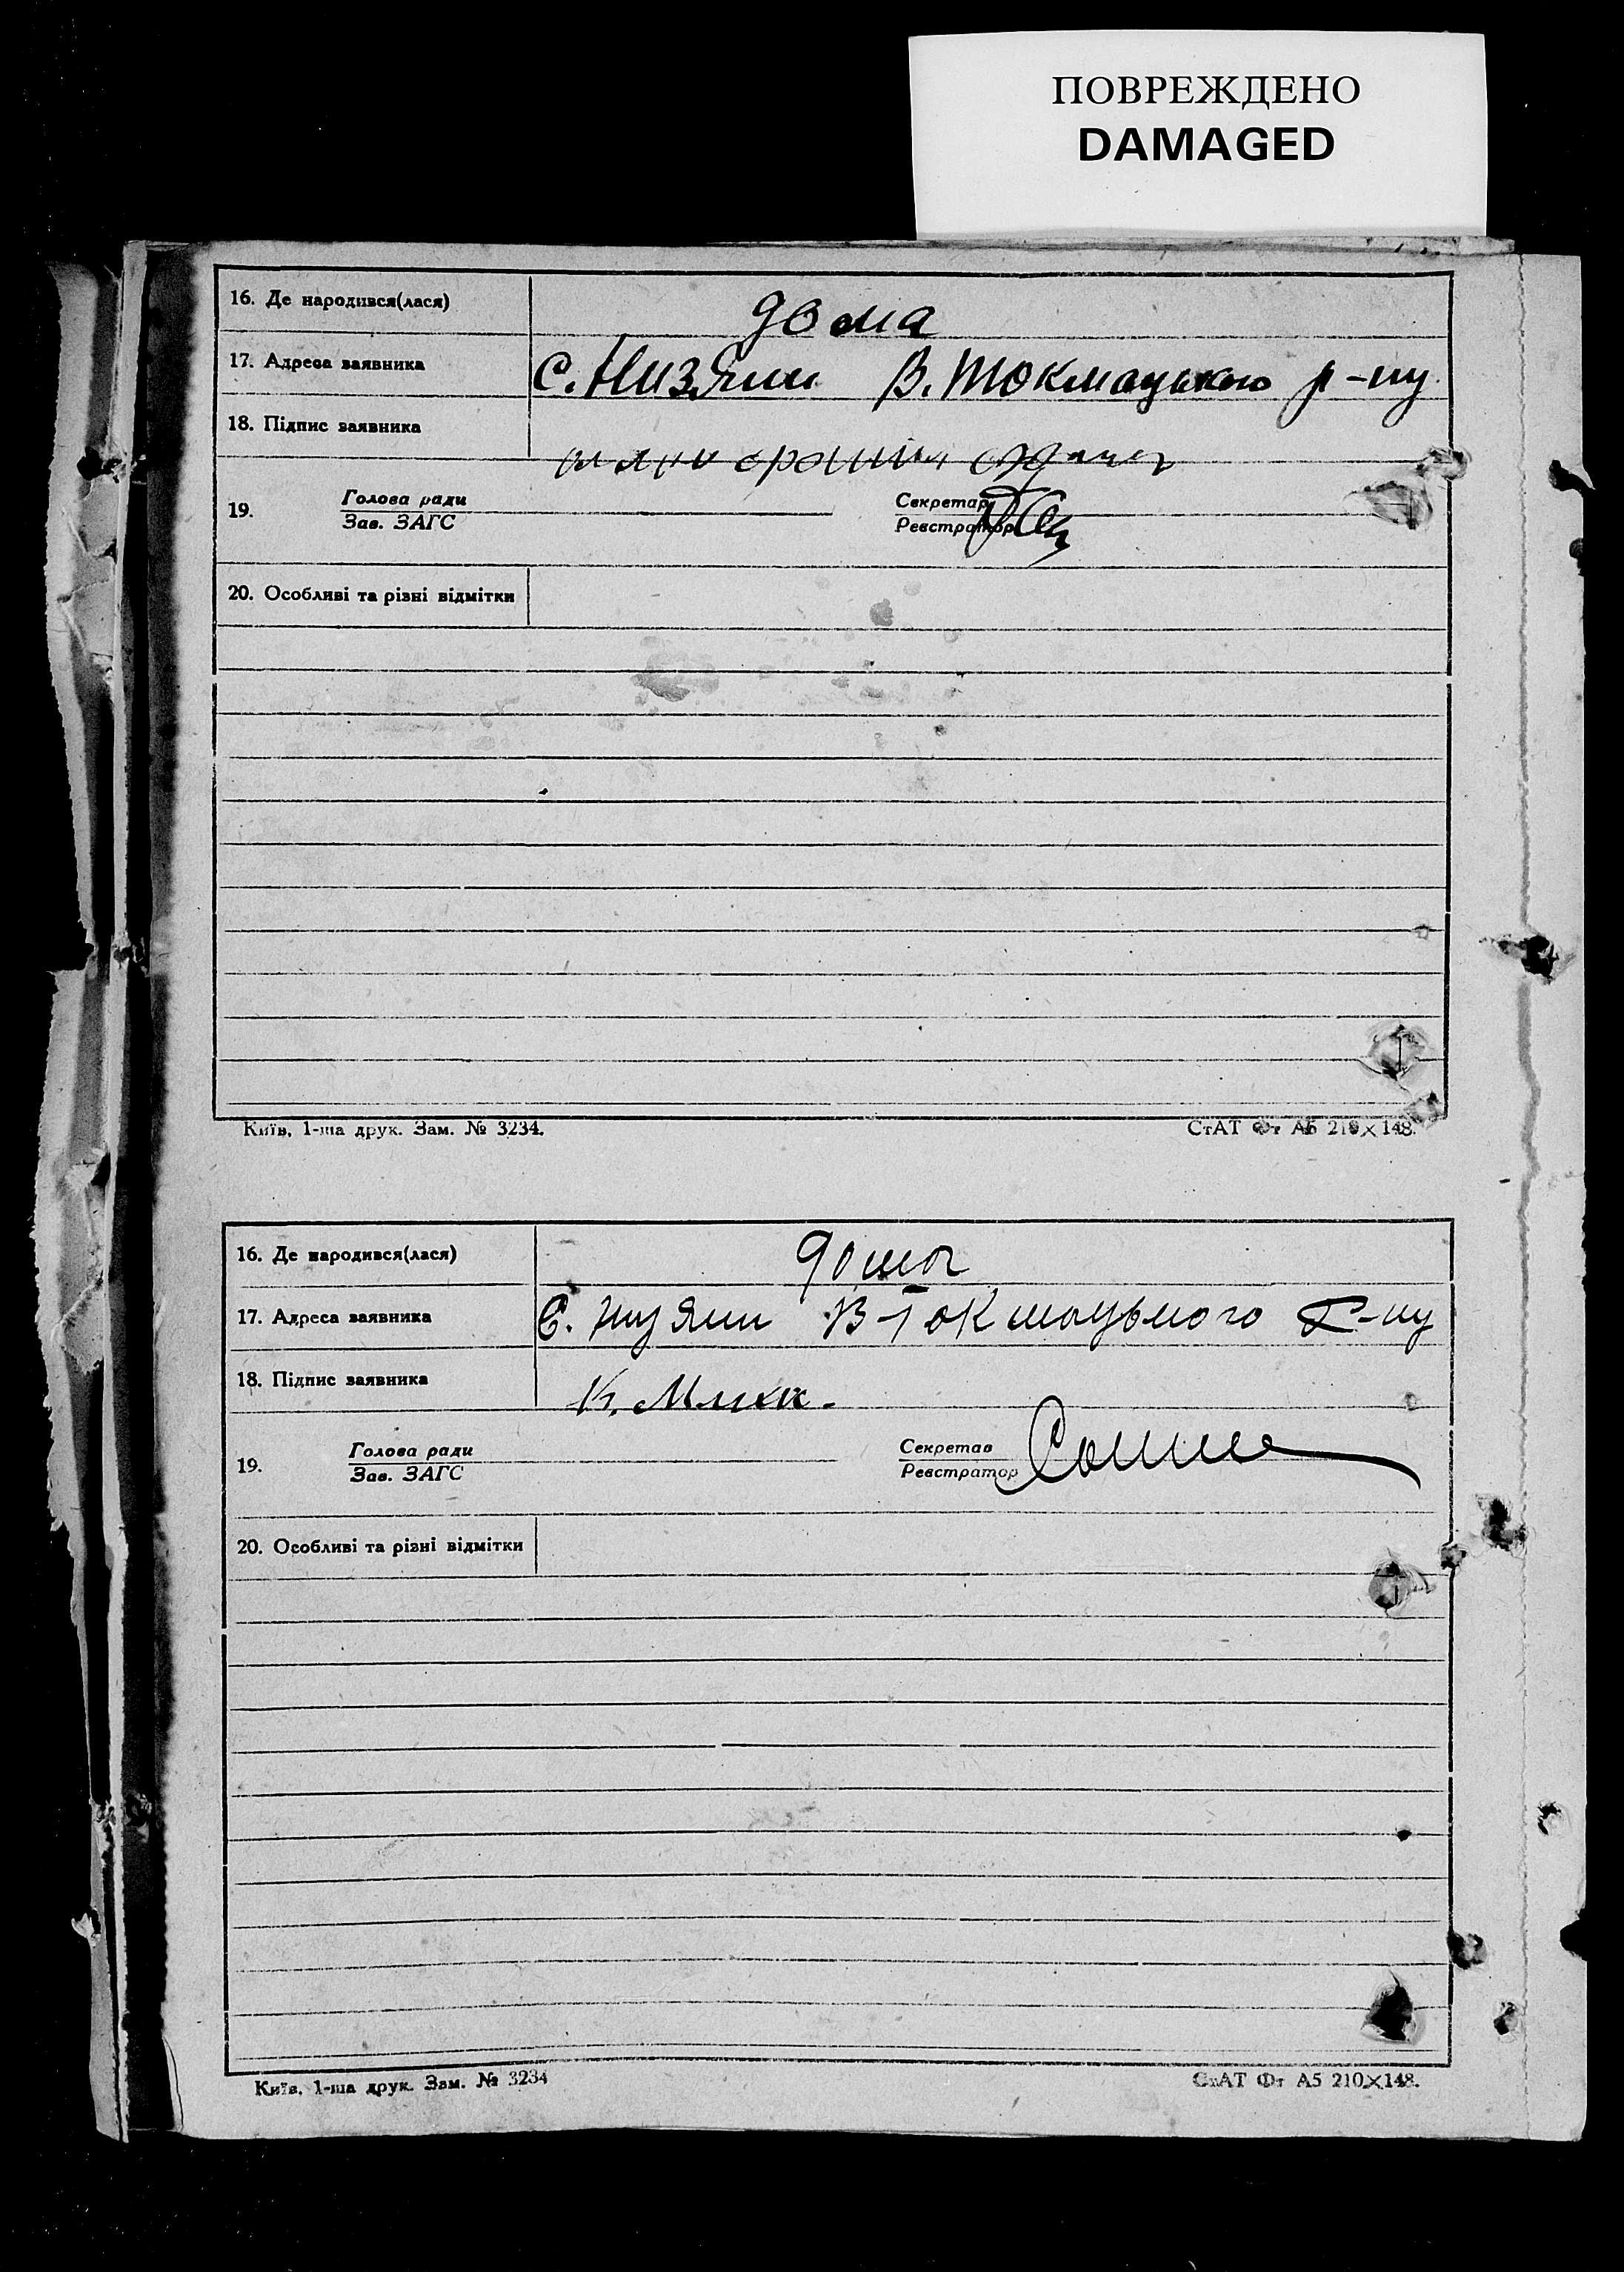 ПОВРЕЖДЕНО
DAMAGED
16. Де народився(лася) дома
17. Адреса заявника С. Низяни В. Токмацького р-ну
18. Підпис заявника
19. Голова ради Секретар
Зав. ЗАГС Реєстратор
20. Особливі та різні відмітки
Київ, 1-ша друк. Зам. № 3234. СтАТ Фт А5 210×148.
16. Де народився(лася) дома
17. Адреса заявника С. Низяни В-Токмацького р-ну
18. Підпис заявника К.
19. Голова ради Секретар
Зав. ЗАГС Реєстратор
20. Особливі та різні відмітки
Київ, 1-ша друк. Зам. № 3234 СтАТ Фт А5 210×148.